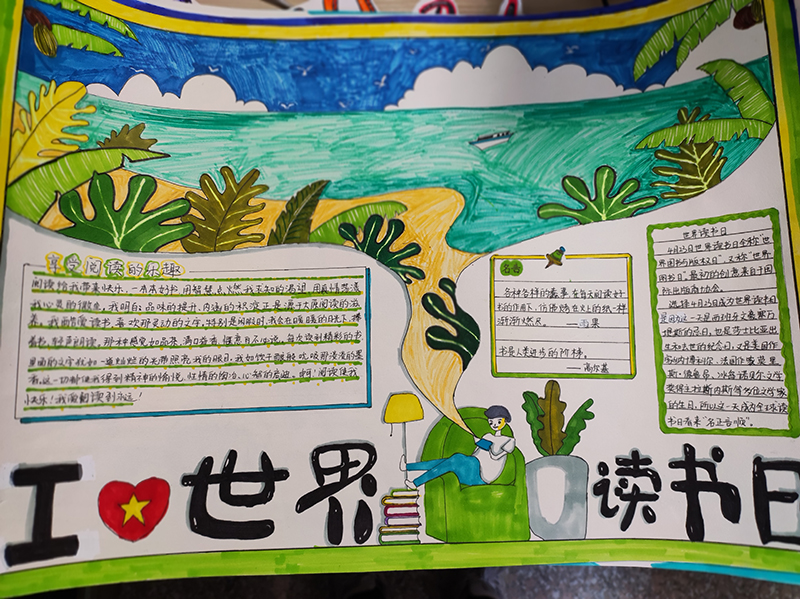 享受阅读的乐趣
阅读给我带来快乐,一本本好书,用智慧点燃我不知的渴望,用真情荡漾
我心灵的微点,我明白:品味的提升、内涵的积淀于是源于大度阅读的滋
养。我酷爱读书,喜欢那灵动的文字,特别是闲暇时,我会在暖暖的日光下,捧
着书,轻声朗读,那种感觉如品茶,满口香馨,惬意自不必说。每次读到精彩的书
里面的文字犹如一盏灿烂的天带照亮我的眼目,犹如饮甘醇般地
着,这一切都使我得到精神的愉悦、性情的陶冶、心智的启迪。啊!阅读使我
快乐!我需要阅读到永远!
名言
各种各样的蠢事,在每天阅读好
书的作用下,仿佛烤在火上的纸一样
渐渐燃尽。——雨果
书是人类进步的阶梯。
——高尔基
世界读书日
4月23日世界读书日全称“世
界图书与版权日”,又称“世界
图书日”,最初的创意来自于国
际出版商协会。
选择4月23日成为世界读书日
是因为这一天是西班牙文豪塞万
提斯的忌日,也是莎士比亚出
生和去世的纪念日,又是美国作
家纳博科夫、法国作家莫里
斯·德鲁昂、冰岛诺贝尔文学
奖得主拉克斯内斯等多位文学家
的生日,所以这一天成为全球读
书日看来“名正言顺”。
I 世界 读书日